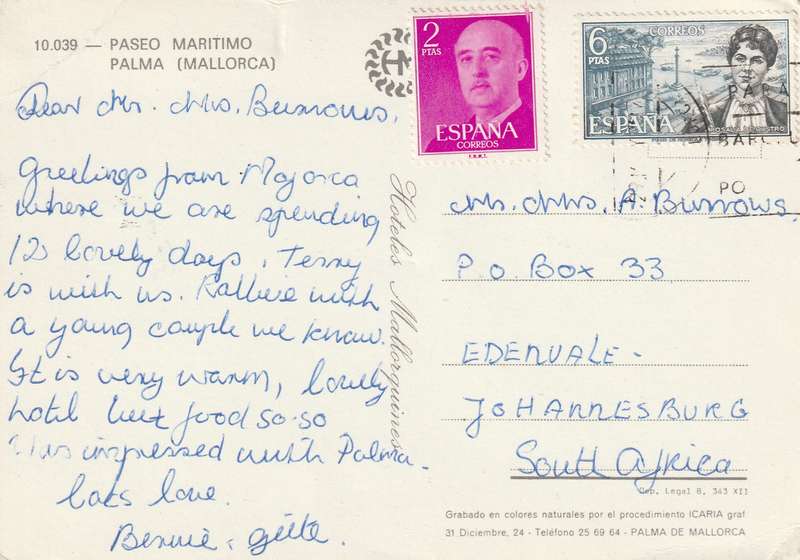 10.039 — PASEO MARITIMO
PALMA (MALLORCA)
2
PTAS
ESPAÑA
CORREOS
F.N.M.T.
6
PTAS
CORREOS
ESPAÑA
BARCEL
PO
Dear Mr. Mrs. Burrows,
Greetings from Majorca
where we are spending
12 lovely days. Terry
is with us. Kathie with
a young couple we know.
It is very warm, lovely
hotel but food so-so
impressed with Palma.
Lots love.
Bernie
Hoteles Mallorquines
Mr. Mrs. A. Burrows,
P.O. Box 33
EDENVALE -
JOHANNESBURG
South Africa
Dep. Legal B. 343 XII
Grabado en colores naturales por el procedimiento ICARIA graf
31 Diciembre, 24 - Teléfono 25 69 64 - PALMA DE MALLORCA